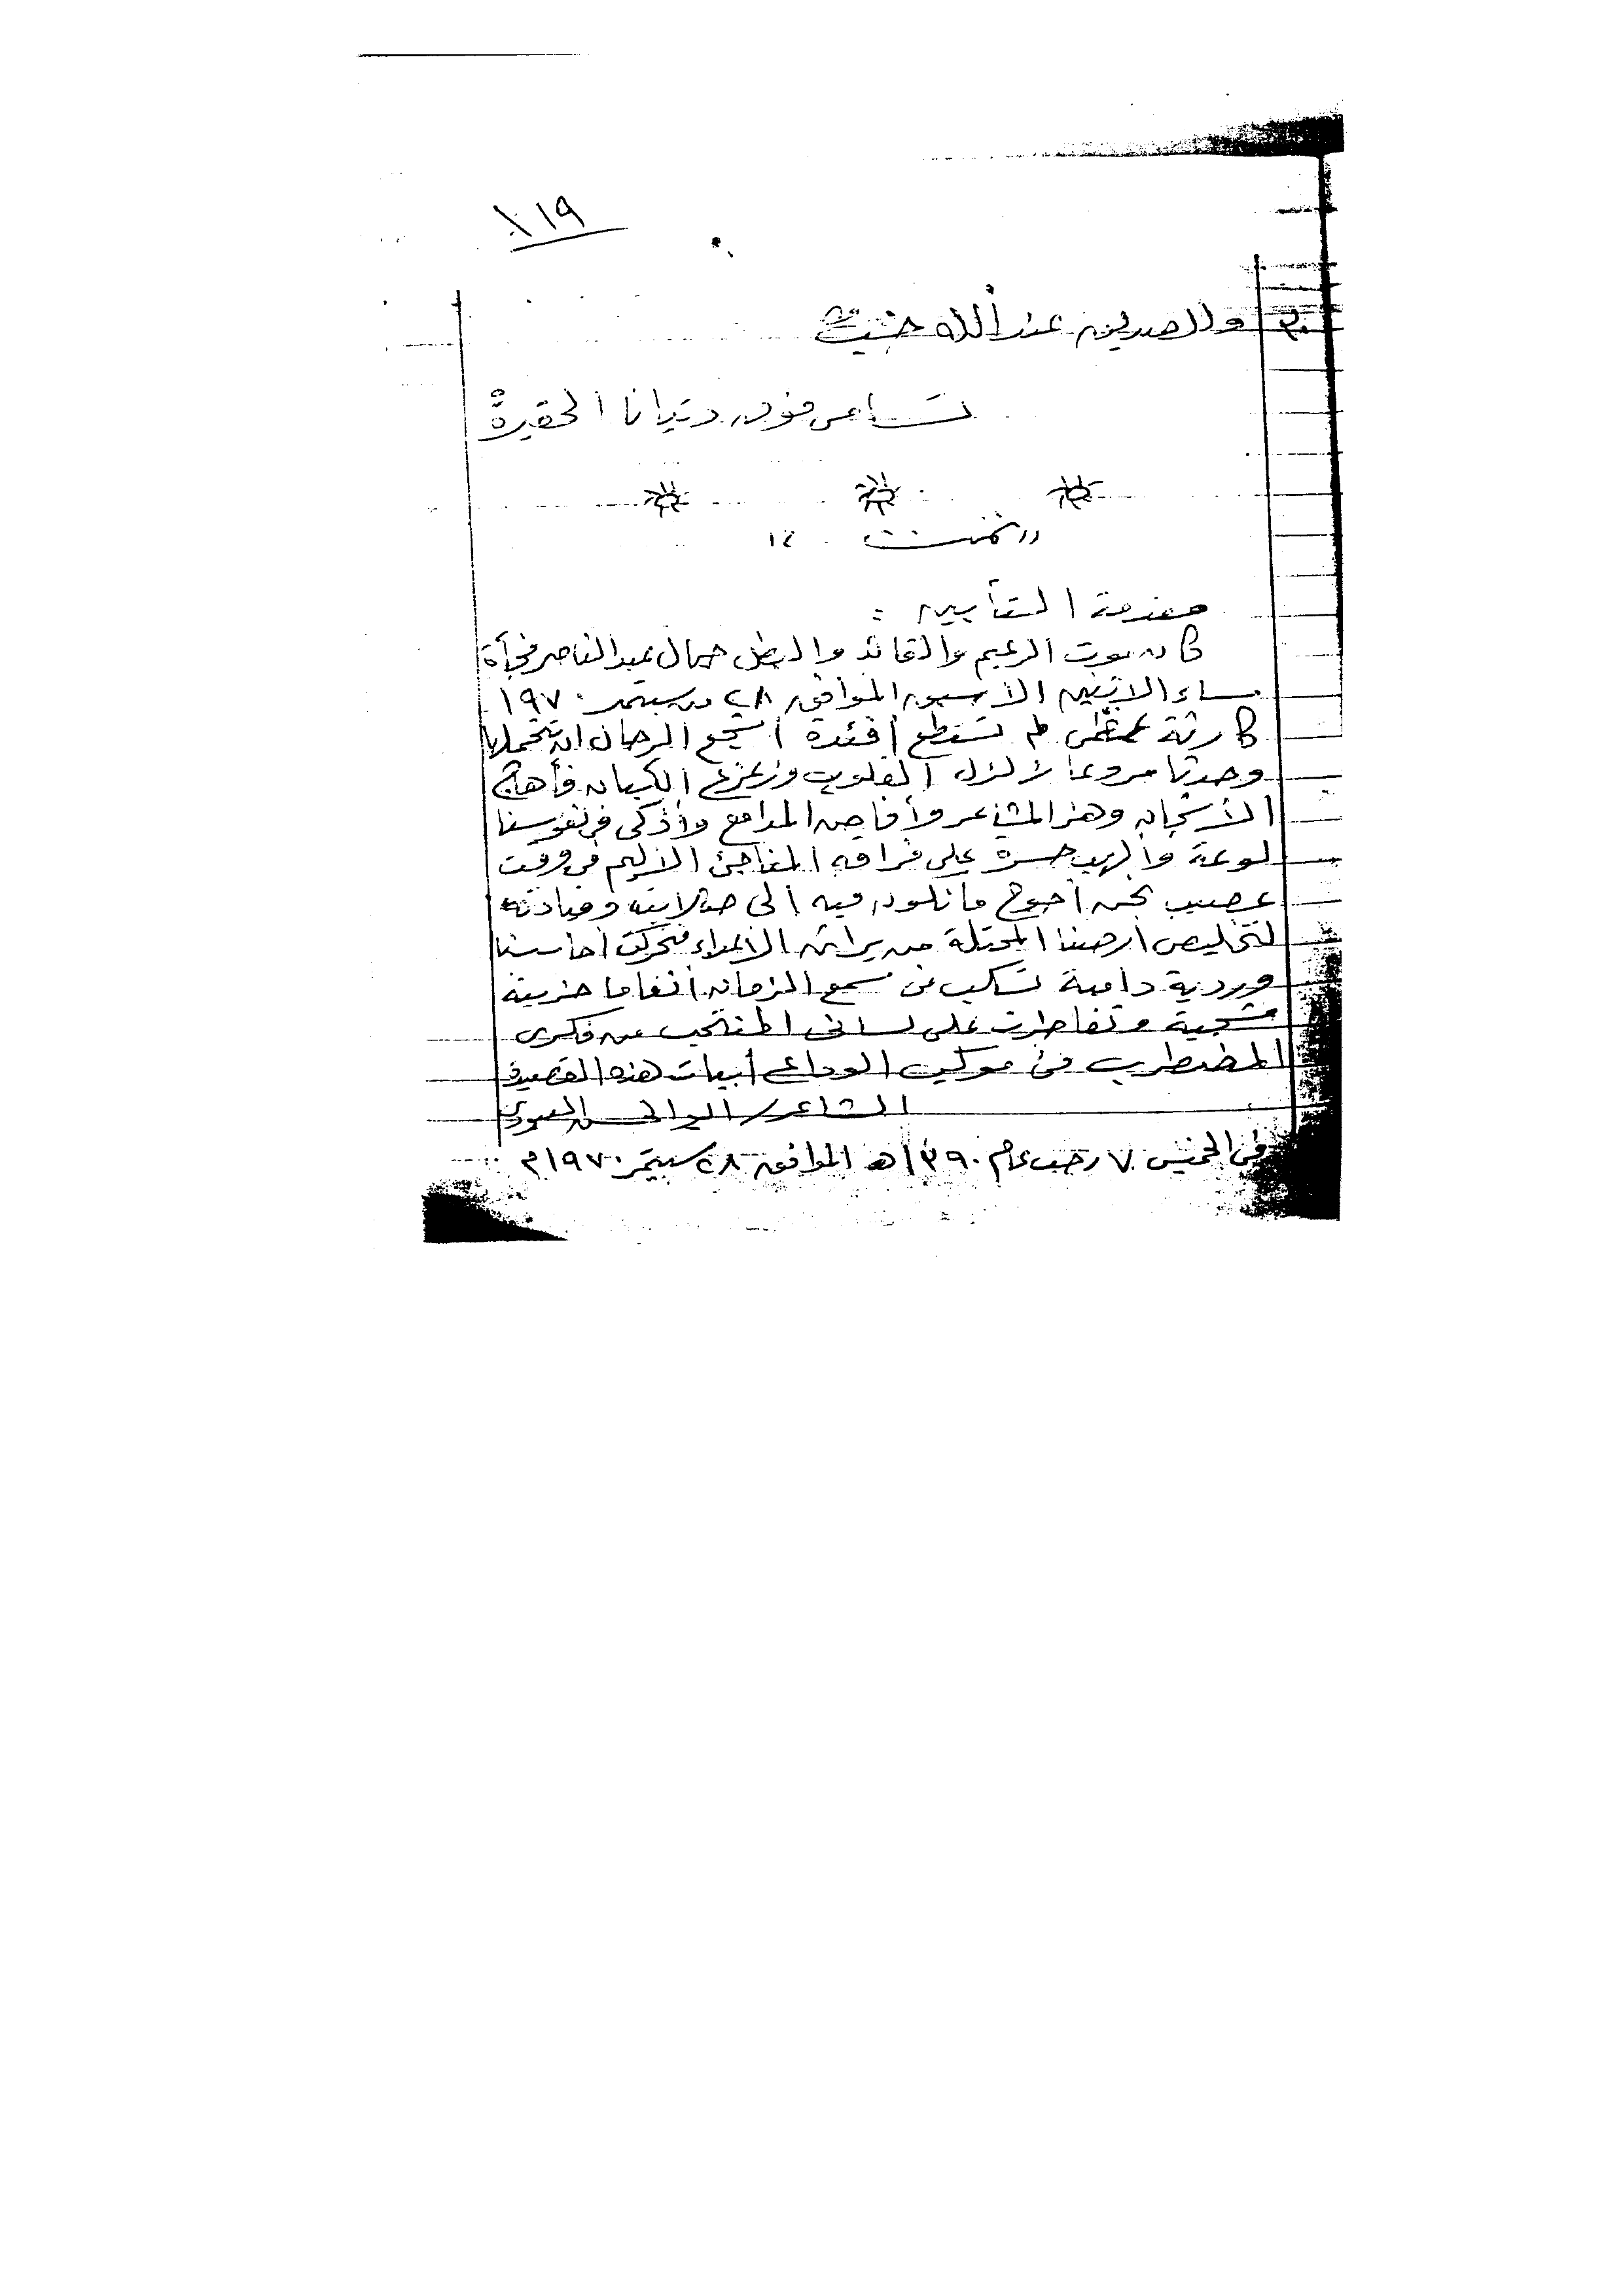 ١١٩
٣٠ وللصديق عند الله جنة
تسامى فوق دنيانا الحقيرة
" تمت "
مقدمة التأبين :
كان موت الزعيم والقائد والبطل جمال عبدالناصر فجأة
مساء الاثنين الأسود الموافق ٢٨ من سبتمبر ١٩٧٠
كارثة عظمى لم تستطع أفئدة أشجع الرجال ان تتحملها
وحدثا مروعا زلزل القلوب وزعزع الكيان فأهاج
الأشجان وهز المشاعر وأفاض المدامع وأذكى فى نفوسنا
لوعة وألهب حسرة على فراقه المفاجئ الأليم فى وقت
عصيب نحن أحوج مانكون فيه الى صلابته وقيادته
لتخليص أرضنا المحتلة من براثن الأعداء فتحركت أحاسيسنا
وردية دامية تسكب فى سمع الزمان أنغاما حزينة
شجية وتقاطرت على لسانى المنتحب من فكرى
المضطرب فى موكب الوداع أبيات هذه القصيدة
الشاعر/
فى الخميس ٧ رجب عام ١٣٩٠ هـ الموافق ٢٨ سبتمبر ١٩٧٠م